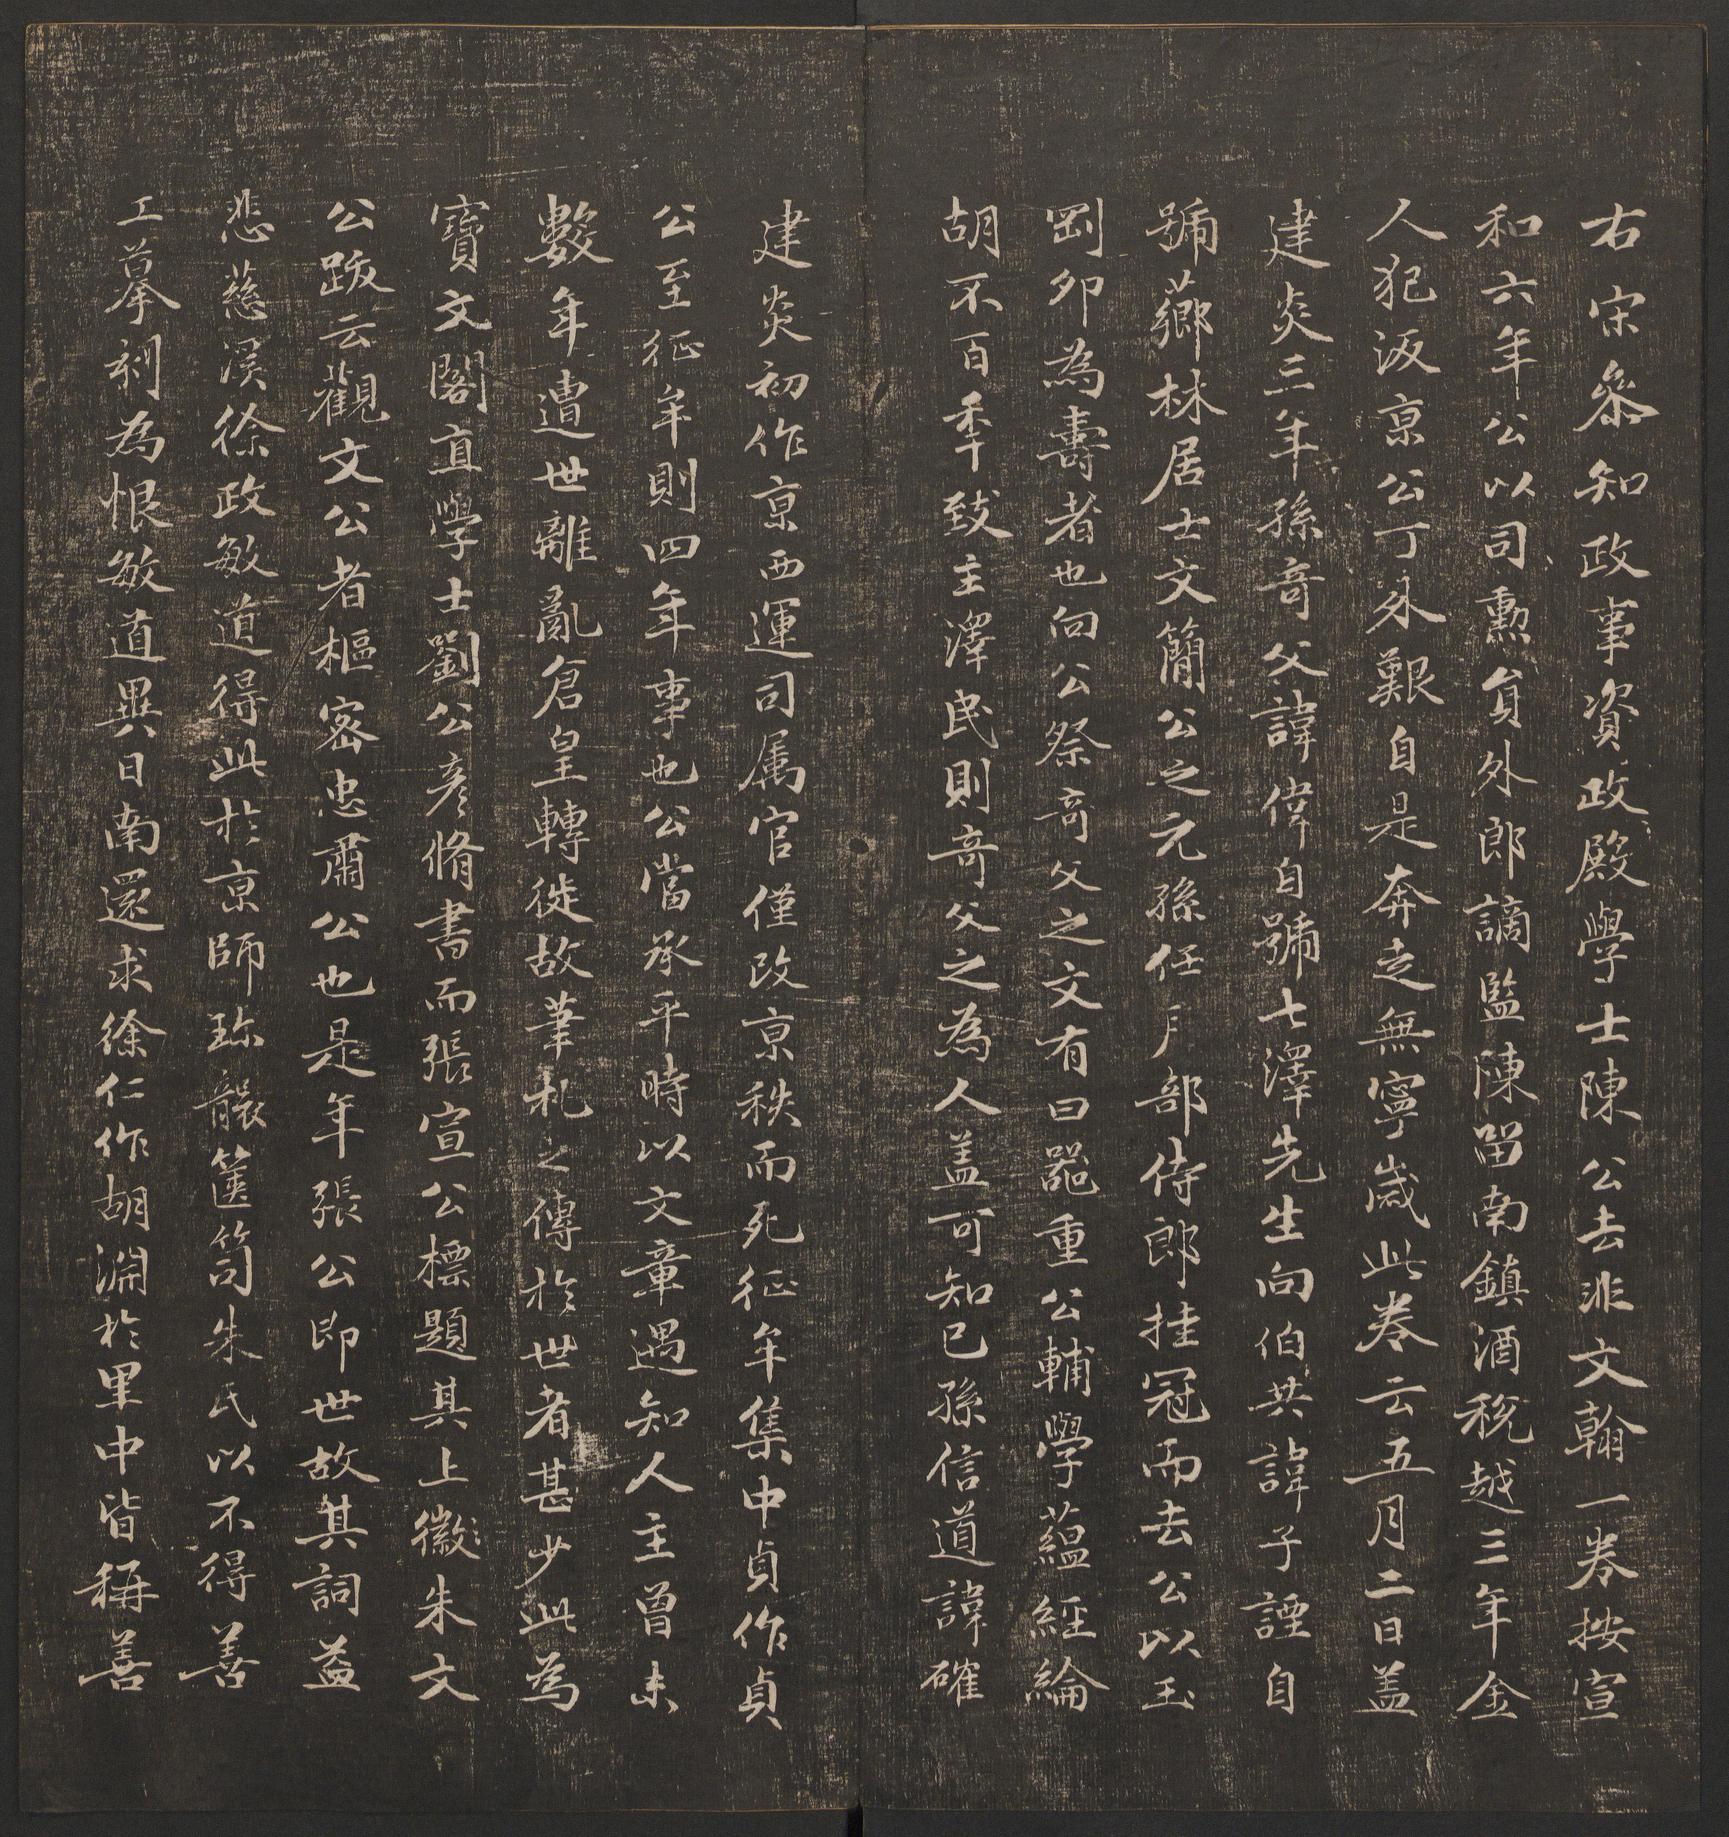 右宋參知政事資政殿學士陳公去非文翰一卷按宣
和六年公以司勳員外郎謫監陳留南鎮酒稅越三年金
人犯汳京公丁外艱自是奔走無寧歲此卷云五月二日蓋
建炎三年孫奇父諱偉自號七澤先生向伯共諱子諲自
號薌林居士文簡公之元孫任戶部侍郎挂冠而去公以玉
剛卯為壽者也向公祭奇父之文有曰器重公輔學蘊經綸
胡不百年致主澤民則奇父之為人蓋可知已孫信道諱確
建炎初作京西運司属官僅改京秩而死征牟集中貞作貞
公至征牟則四年事也公當承平時以文章遇知人主曾未
數年遭世離亂倉皇轉徙故筆札之傳於世者甚少此為
寶文閣直學士劉公彥脩書而張宣公標題其上徽朱文
公跋云觀文公者樞密忠肅公也是年張公即世故其詞益
悲慈溪徐政敏道得此於京師珎襲篋笥朱氏以不得善
工摹刻為恨敏道異日南還求徐仁作胡淵於里中皆稱善